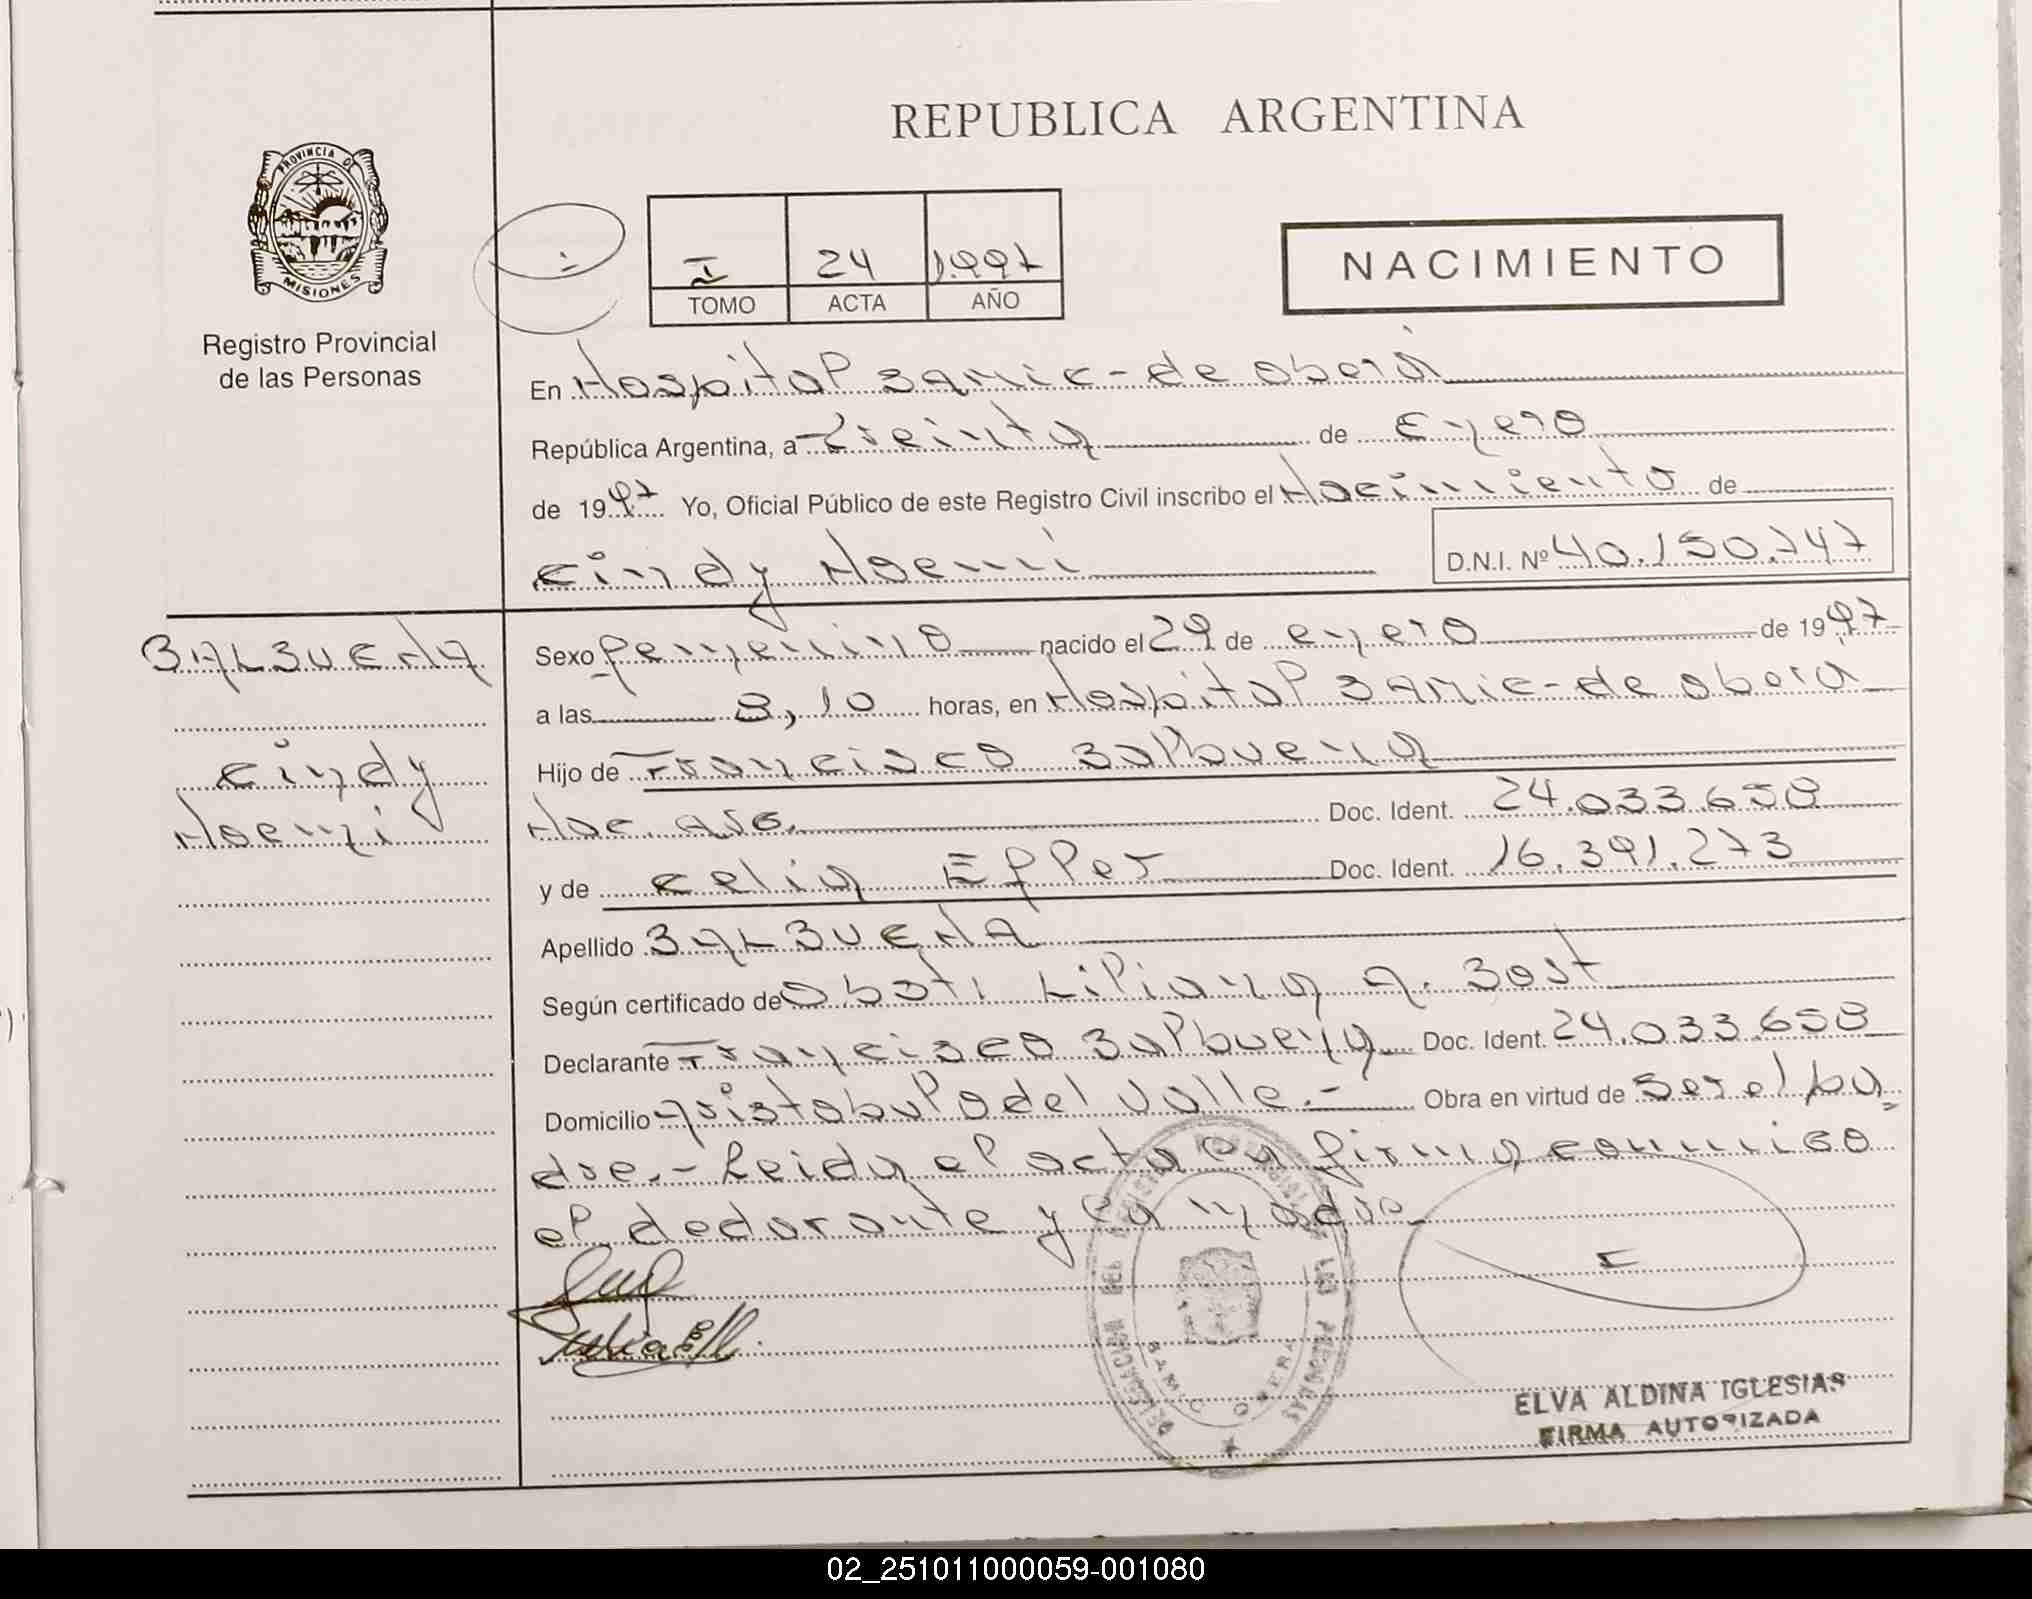 REPUBLICA ARGENTINA
PROVINCIA DE
MISIONES
Registro Provincial
de las Personas
I 24 1.997
TOMO ACTA AÑO
NACIMIENTO
En Hospital SAMIC-de oberá
República Argentina, a Treinta de Enero
de 1997 Yo, Oficial Público de este Registro Civil inscribo el Nacimiento de
Cindy Noemi D.N.I. Nº 40.150.747
BALBUENA
Cindy
Noemi
Sexo femenino nacido el 29 de enero de 1997
a las 8,10 horas, en Hospital SAMIC-de obera
Hijo de Francisco Balbuena
Nac. arg. Doc. Ident. 24.033.658
y de Celia Efler Doc. Ident. 16.391.273
Apellido BALBUENA
Según certificado de Obst. Liliana A. Bost
Declarante Francisco Balbuena Doc. Ident. 24.033.658
Domicilio Aristobulo del Valle.- Obra en virtud de Ser el pa=
dre.- Leida el acta la firma conmigo
el declarante y la madre
DELEGACION DEL REGISTRO PROVINCIAL DE LAS PERSONAS
SAMIC OBERA
ELVA ALDINA IGLESIAS
FIRMA AUTORIZADA
02_251011000059-001080